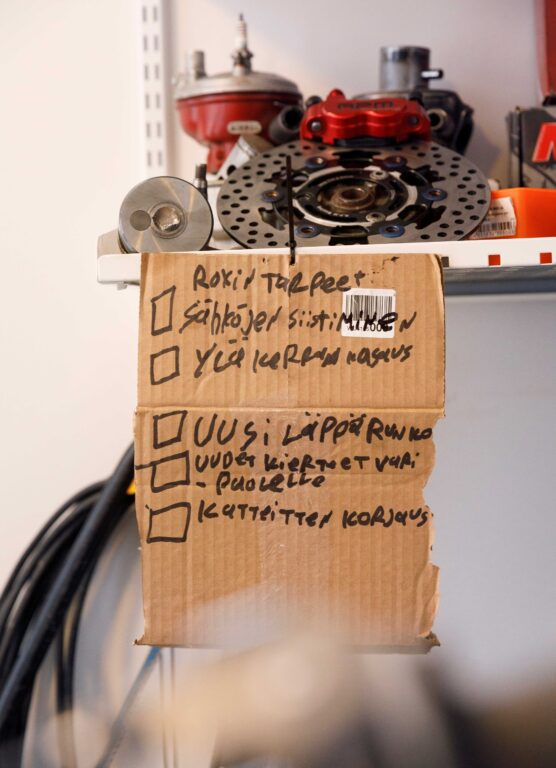 ROXIN TARPEET
SÄHKÖJEN SiiSTiMiNEN
YLÄKERRAN KASAUS
UUSi LÄPPÄRUNKO
UUDET KIERTEET VARI
- PUOLELLE
KATTEITTEN KORJAUS